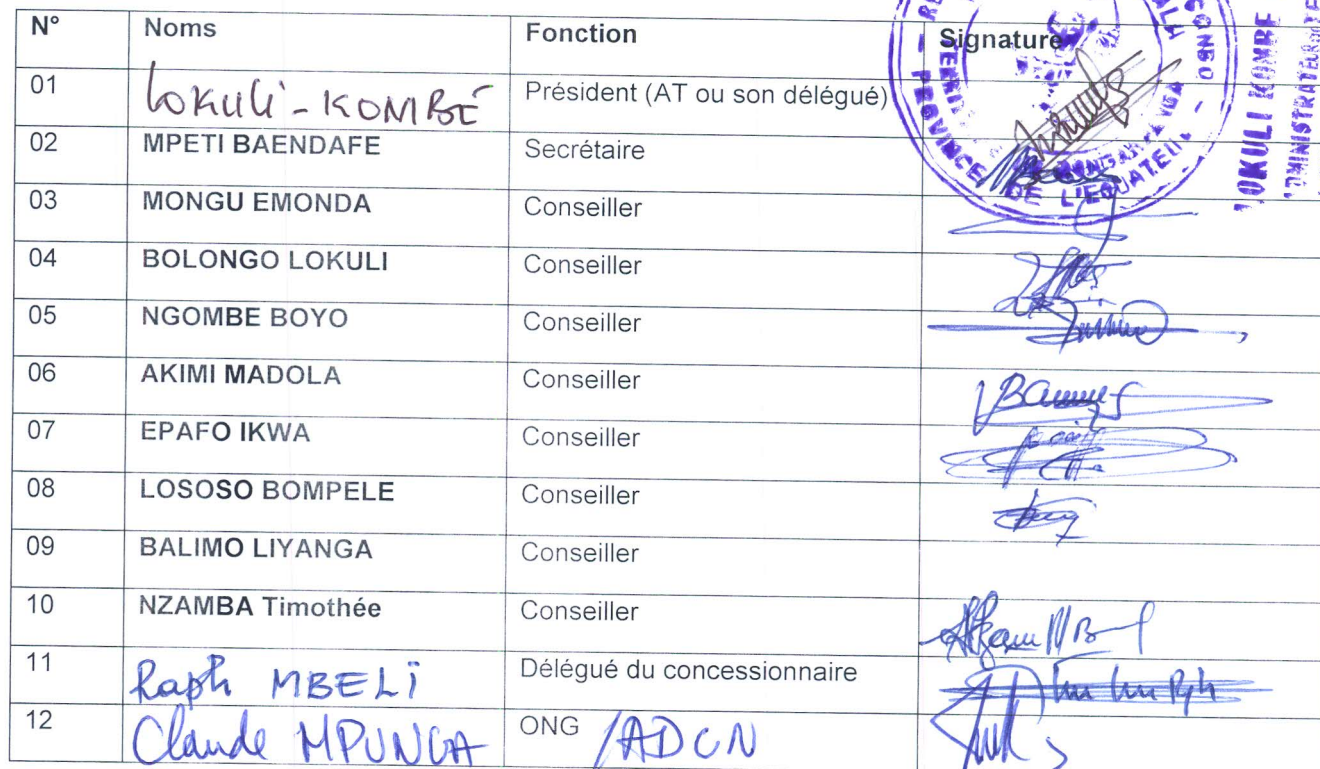 N° Noms Fonction Signature
01 Lokuli-KOMBÉ Président (AT ou son délégué)
02 MPETI BAENDAFE Secrétaire
03 MONGU EMONDA Conseiller
04 BOLONGO LOKULI Conseiller
05 NGOMBE BOYO Conseiller
06 AKIMI MADOLA Conseiller
07 EPAFO IKWA Conseiller
08 LOSOSO BOMPELE Conseiller
09 BALIMO LIYANGA Conseiller
10 NZAMBA Timothée Conseiller
11 Raph MBELÏ Délégué du concessionnaire
12 Claude MPUNGA ONG /ADCN
CONGO
PROVINCE DE L'EQUATEUR
LOKULI KOMBE